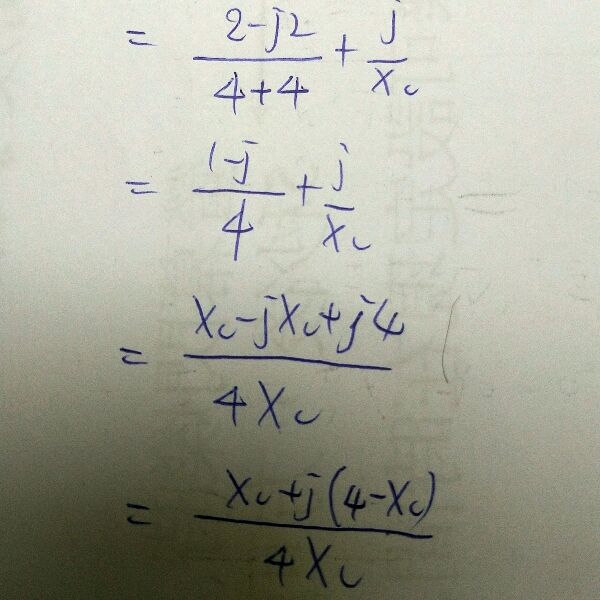 = \frac{2-j2}{4+4} + \frac{j}{X_c}
= \frac{1-j}{4} + \frac{j}{X_c}
= \frac{X_c-jX_c+j4}{4X_c}
= \frac{X_c+j(4-X_c)}{4X_c}